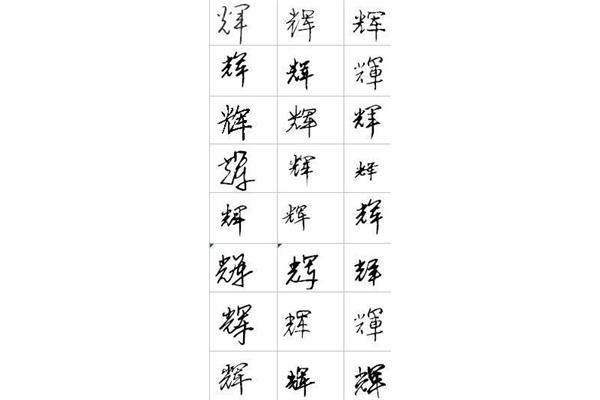 辉 辉 辉
辉 辉 輝
辉 辉 辉
辉 辉 辉
辉 辉 辉
辉 辉 辉
辉 辉 輝
辉 辉 辉